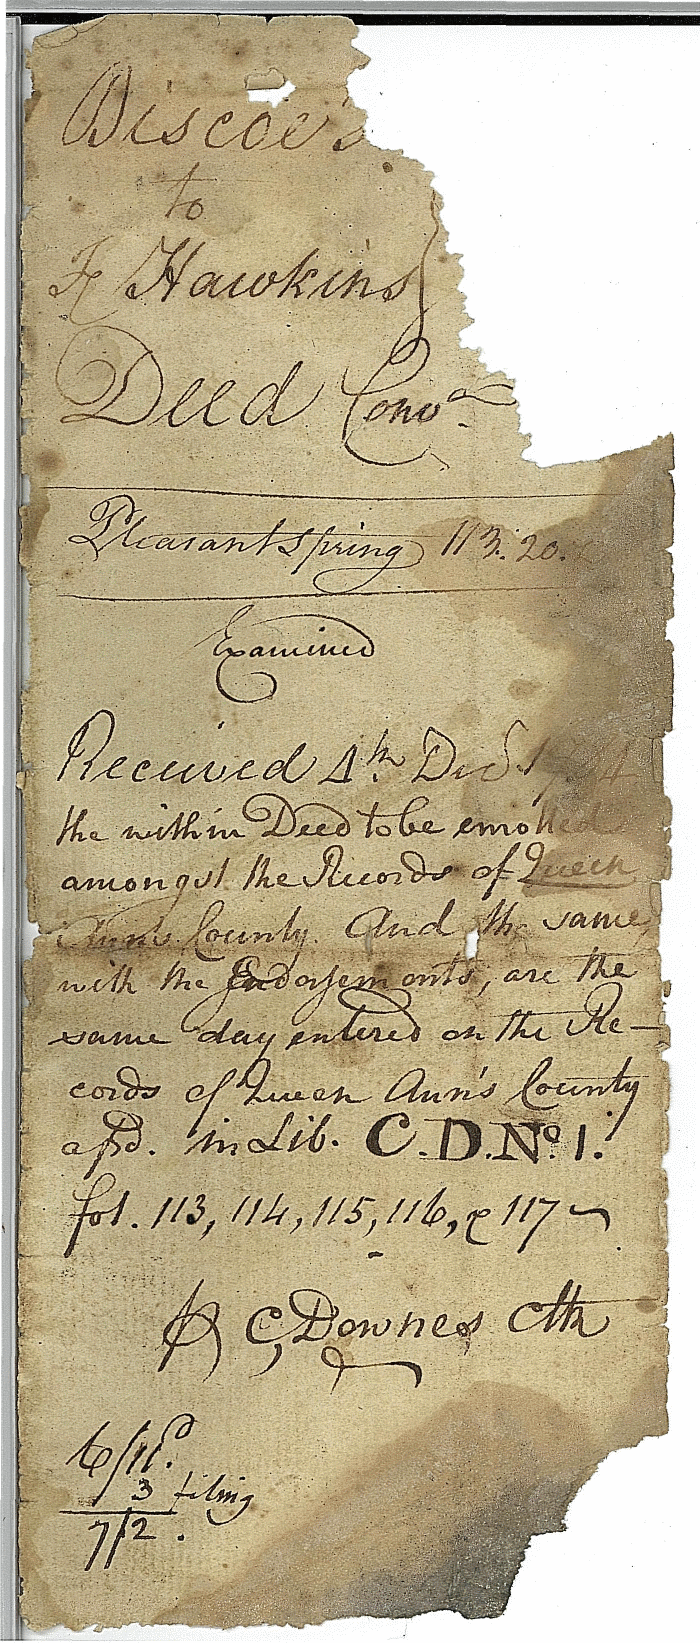 Biscoe's
to
Hawkins
Deed Conv.ᵃ
Pleasant Spring 113. 20.
Examined
Received 4th Decr
the within Deed to be enrolled
amongst the Records of Queen
Ann's County. And the same
with the Endorsements, are the
same day entered on the Re-
cords of Queen Ann's County
afsd. in Lib. C.D. No. 1.
fol. 113, 114, 115, 116, & 117
C Downes Clk
6/11d.
3 filing
7/2.